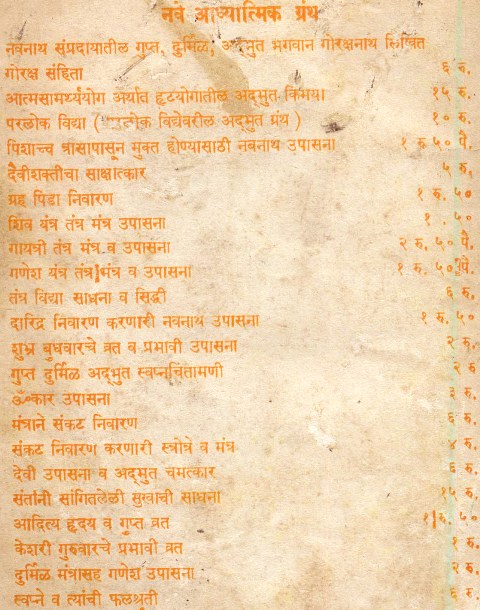 नवे आध्यात्मिक ग्रंथ
नवनाथ संप्रदायातील गुप्त, दुर्मिळ, अद्भुत भगवान गोरक्षनाथ लिखित
गोरक्ष संहिता ६ रु.
आत्मसामर्थ्ययोग अर्थात हटयोगातील अद्भुत किमया १५ रु.
परलोक विद्या ( विद्येवरील अद्भुत ग्रंथ ) १० रु.
पिशाच्च त्रासापासून मुक्त होण्यासाठी नवनाथ उपासना १ रु ५० पै.
दैवीशक्तीचा साक्षात्कार ५ रु.
ग्रह पिडा निवारण १ रु. ५०
शिव यंत्र तंत्र मंत्र उपासना १ .५०
गायत्री तंत्र मंत्र व उपासना २ रु. ५० पै.
गणेश यंत्र तंत्र मंत्र व उपासना १ रु. ५० पै.
तंत्र विद्या साधना व सिद्धी ६ रु.
दारिद्र निवारण करणारी नवनाथ उपासना १ रु ५०
शुभ्र बुधवारचे व्रत व प्रभावी उपासना २ रु.
गुप्त दुर्मिळ अद्भुत स्वप्नचिंतामणी २ रु
ॐकार उपासना ३ रु.
मंत्राने संकट निवारण ६ रु.
संकट निवारण करणारी स्त्रोत्रे व मंत्र ४ रु.
देवी उपासना व अद्भुत चमत्कार ६ रु.
संतांनी सांगितलेली सुखाची साधना १५ रु.
आदित्य हृदय व गुप्त व्रत १ रु. ५०
केशरी गुरुवारचे प्रभावी व्रत १ रु.
दुर्मिळ मंत्रासह गणेश उपासना २ रु.
स्वप्ने व त्यांची फलश्रुती ६ रु.